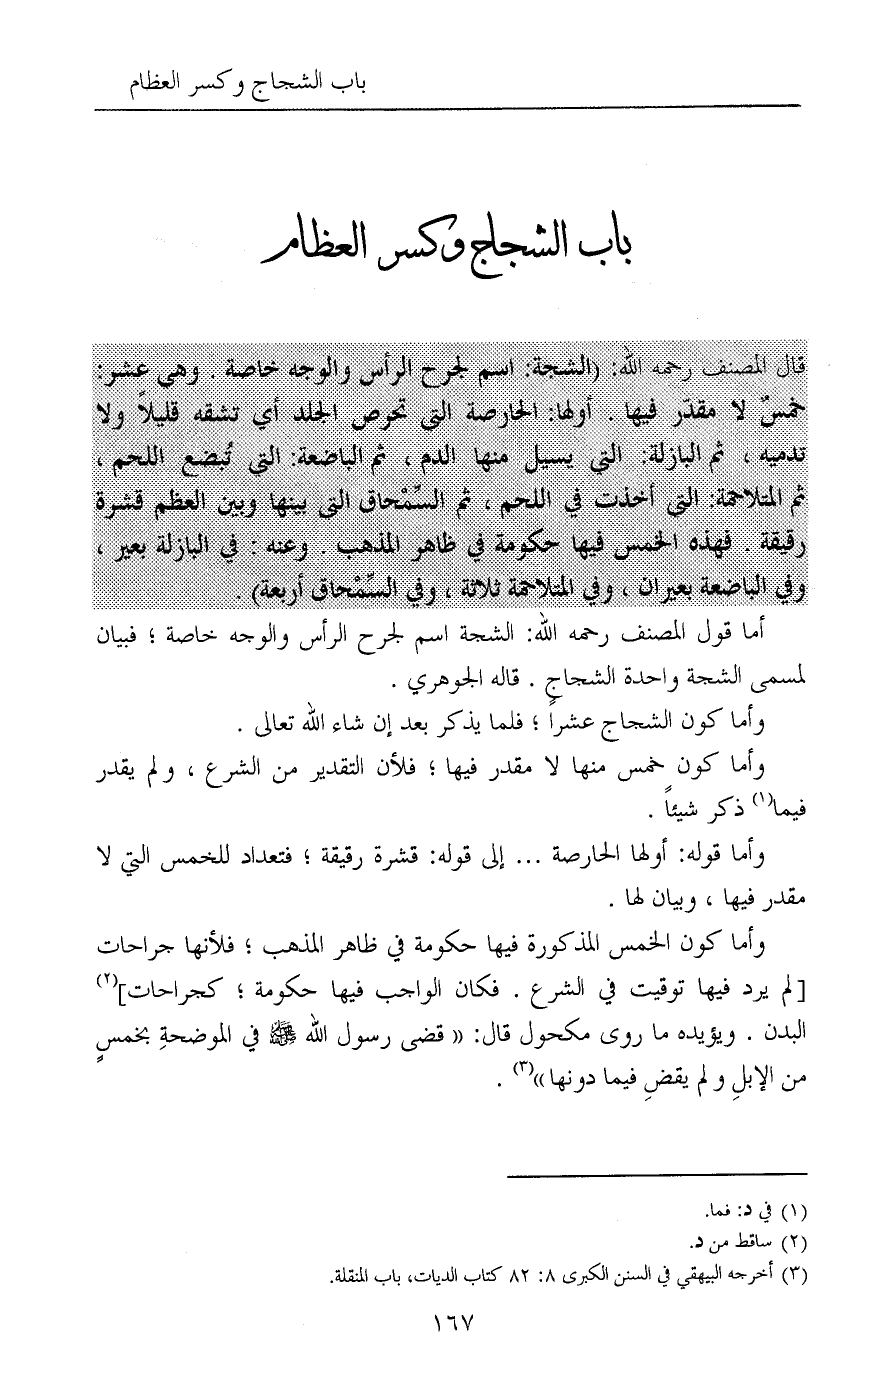 باب الشجاج وكسر العظام
باب الشجاج وكسر العظام
قال المصنف رحمه الله: (الشجة: اسم لجرح الرأس والوجه خاصة . وهي عشر:
خمسٌ لا مقدّر فيها . أولها: الحارصة التي تحرص الجلد أي تشقه قليلاً ولا
تدميه ، ثم البازلة: التي يسيل منها الدم ، ثم الباضعة: التي تُبضع اللحم ،
ثم المتلاحمة: التي أخذت في اللحم ، ثم السِّمْحاق التي بينها وبين العظم قشرة
رقيقة . فهذه الخمس فيها حكومة في ظاهر المذهب . وعنه : في البازلة بعير ،
وفي الباضعة بعيران ، وفي المتلاحمة ثلاثة ، وفي السِّمْحاق أربعة) .
أما قول المصنف رحمه الله: الشجة اسم لجرح الرأس والوجه خاصة ؛ فبيان
لمسمى الشجة واحدة الشجاج . قاله الجوهري .
وأما كون الشجاج عشراً ؛ فلما يذكر بعد إن شاء الله تعالى .
وأما كون خمس منها لا مقدر فيها ؛ فلأن التقدير من الشرع ، ولم يقدر
فيما(١) ذكر شيئاً .
وأما قوله: أولها الحارصة ... إلى قوله: قشرة رقيقة ؛ فتعداد للخمس التي لا
مقدر فيها ، وبيان لها .
وأما كون الخمس المذكورة فيها حكومة في ظاهر المذهب ؛ فلأنها جراحات
[لم يرد فيها توقيت في الشرع . فكان الواجب فيها حكومة ؛ كجراحات](٢)
البدن . ويؤيده ما روى مكحول قال: (( قضى رسول الله ﷺ في الموضحةِ بخمسٍ
من الإبلِ ولم يقضِ فيما دونها))(٣) .
(١) في د: فما.
(٢) ساقط من د.
(٣) أخرجه البيهقي في السنن الكبرى ٨: ٨٢ كتاب الديات، باب المنقلة.
١٦٧